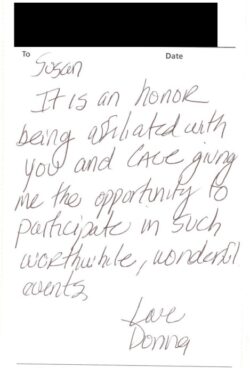 To Date
Susan
It is an honor
being affiliated with
you and CACE giving
me the opportunity to
participate in such
worthwhile, wonderful
events
Love
Donna